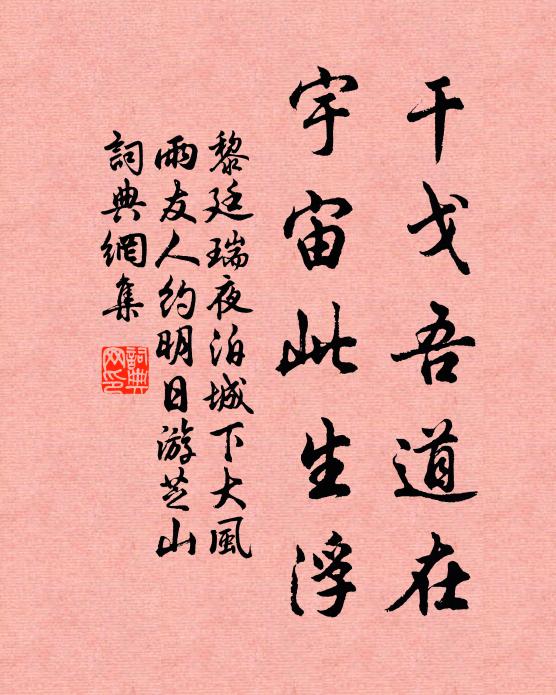 干戈吾道在
宇宙此生浮
黎廷瑞夜泊城下大風
雨友人約明日游芝山
詞典網集
詞典
网印